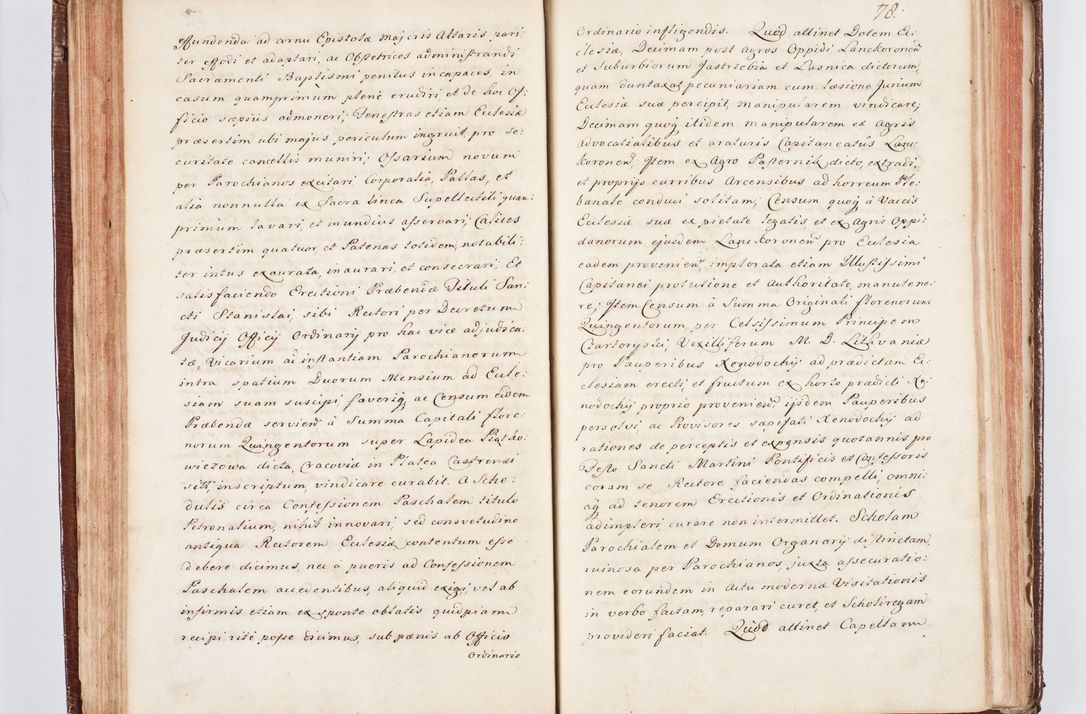 effundenda ad cornu Epistolæ majoris Altaris pari
ter effodi et adaptari, ac Obstetrices administrandi
Sacramenti Baptismi penitus incapaces, in
casum quamprimum plene erudiri et de hoc Of-
ficio sæpius admoneri; Fenestras etiam Ecclesiæ
præsertim ubi majus periculum ingruit, pro se-
curitate cancellis muniri; Ossarium novum
per Parochianos excitari Corporalia, Pallas, et
alia nonnulla ex Sacra linea Supellectili quam-
primum lavari, et mundius asservari; Calices
præsertim quatuor, et Patenas totidem, notabili-
ter intus exaurata, inaurari, et consecrari; Et
satisfaciendo Erectioni Præbendæ Tituli San-
cti Stanislai, sibi Rectori per Decretum
Judicij Officij Ordinarij pro hac vice adjudica-
tæ, Vicarium ad instantiam Parochianorum
intra spatium Duorum Mensium ad Eccle-
siam suam suscipi faverit, ac Censum eidem
Præbendæ servien: à Summa Capitali flore-
norum Quingentorum super Lapidea Piasko-
wiezowa dicta, Cracoviæ in Platea Castrensi
sitt, inscriptum, vindicare curabit. A Sche-
dulis circa Confessionem Paschalem titulo
Petronalium, nihil innovari, sed consvetudine
antiqua Rectorem Ecclesiæ contentum esse
debere dicimus, nec a pueris ad Confessionem
Paschalem accedentibus, aliquid exigi, vel ab
infirmis etiam ex sponte oblatis quidpiam
recipi rite posse dicimus, sub pænis ab Officio
Ordinario
78.
Ordinario infligendis. Quod attinet Dotem Ec-
clesiæ, Decimam post agros Oppidi Lanckoronen:
et Suburbiorum Jastrzebia et Lasnica dictorum,
quam duntaxat pecuniariam cum læsione Jurium
Ecclesiæ suæ percipit, manipularem vindicare;
Decimam quoq; itidem manipularem ex Agris
Advocatialibus et araturis Capitaneatûs Lanc-
koronen: Item ex Agro Pasternik dicto, extradi,
et proprijs curribus Arcensibus ad horreum Ple-
banale conduci solitam; Censum quoq; â Vaccis
Ecclesiæ suæ ex pietate legatis et ex Agris Oppi-
danorum ejusdem Lanckoronen: pro Ecclesia
eadem provenien: implorata etiam Illustrissimi
Capitanei protectione et Authoritate, manutene-
re; Item Censum â Summa Originali florenorum
Quingentorum, per Celsissimum Principem
Czartoryski, Vexilliferum M. D. Lithvaniæ
pro Pauperibus Xenodochij ad prædictam Ec-
clesiam erecti, et fructum ex horto prædicti Xe-
nodochij proprio provenien: ijsdem Pauperibus
persolvi, ac Provisores sæpefati Xenodochij ad
rationes de perceptis et expensis quotannis pro
Festo Sancti Martini Pontificis et Confessoris
coram se Rectore faciendas compelli, omni-
aq; ad tenorem Erectionis et Ordinationis
adimpleri curare non intermittet. Scholam
Parochialem et Domum Organarij distinctam,
ruinosa per Parochianos, juxta assecuratio-
nem eorundem in Actu modernæ Visitationis
in verbo factam, reparari curet, et Scholiregam
provideri faciat. Quod attinet Capellam